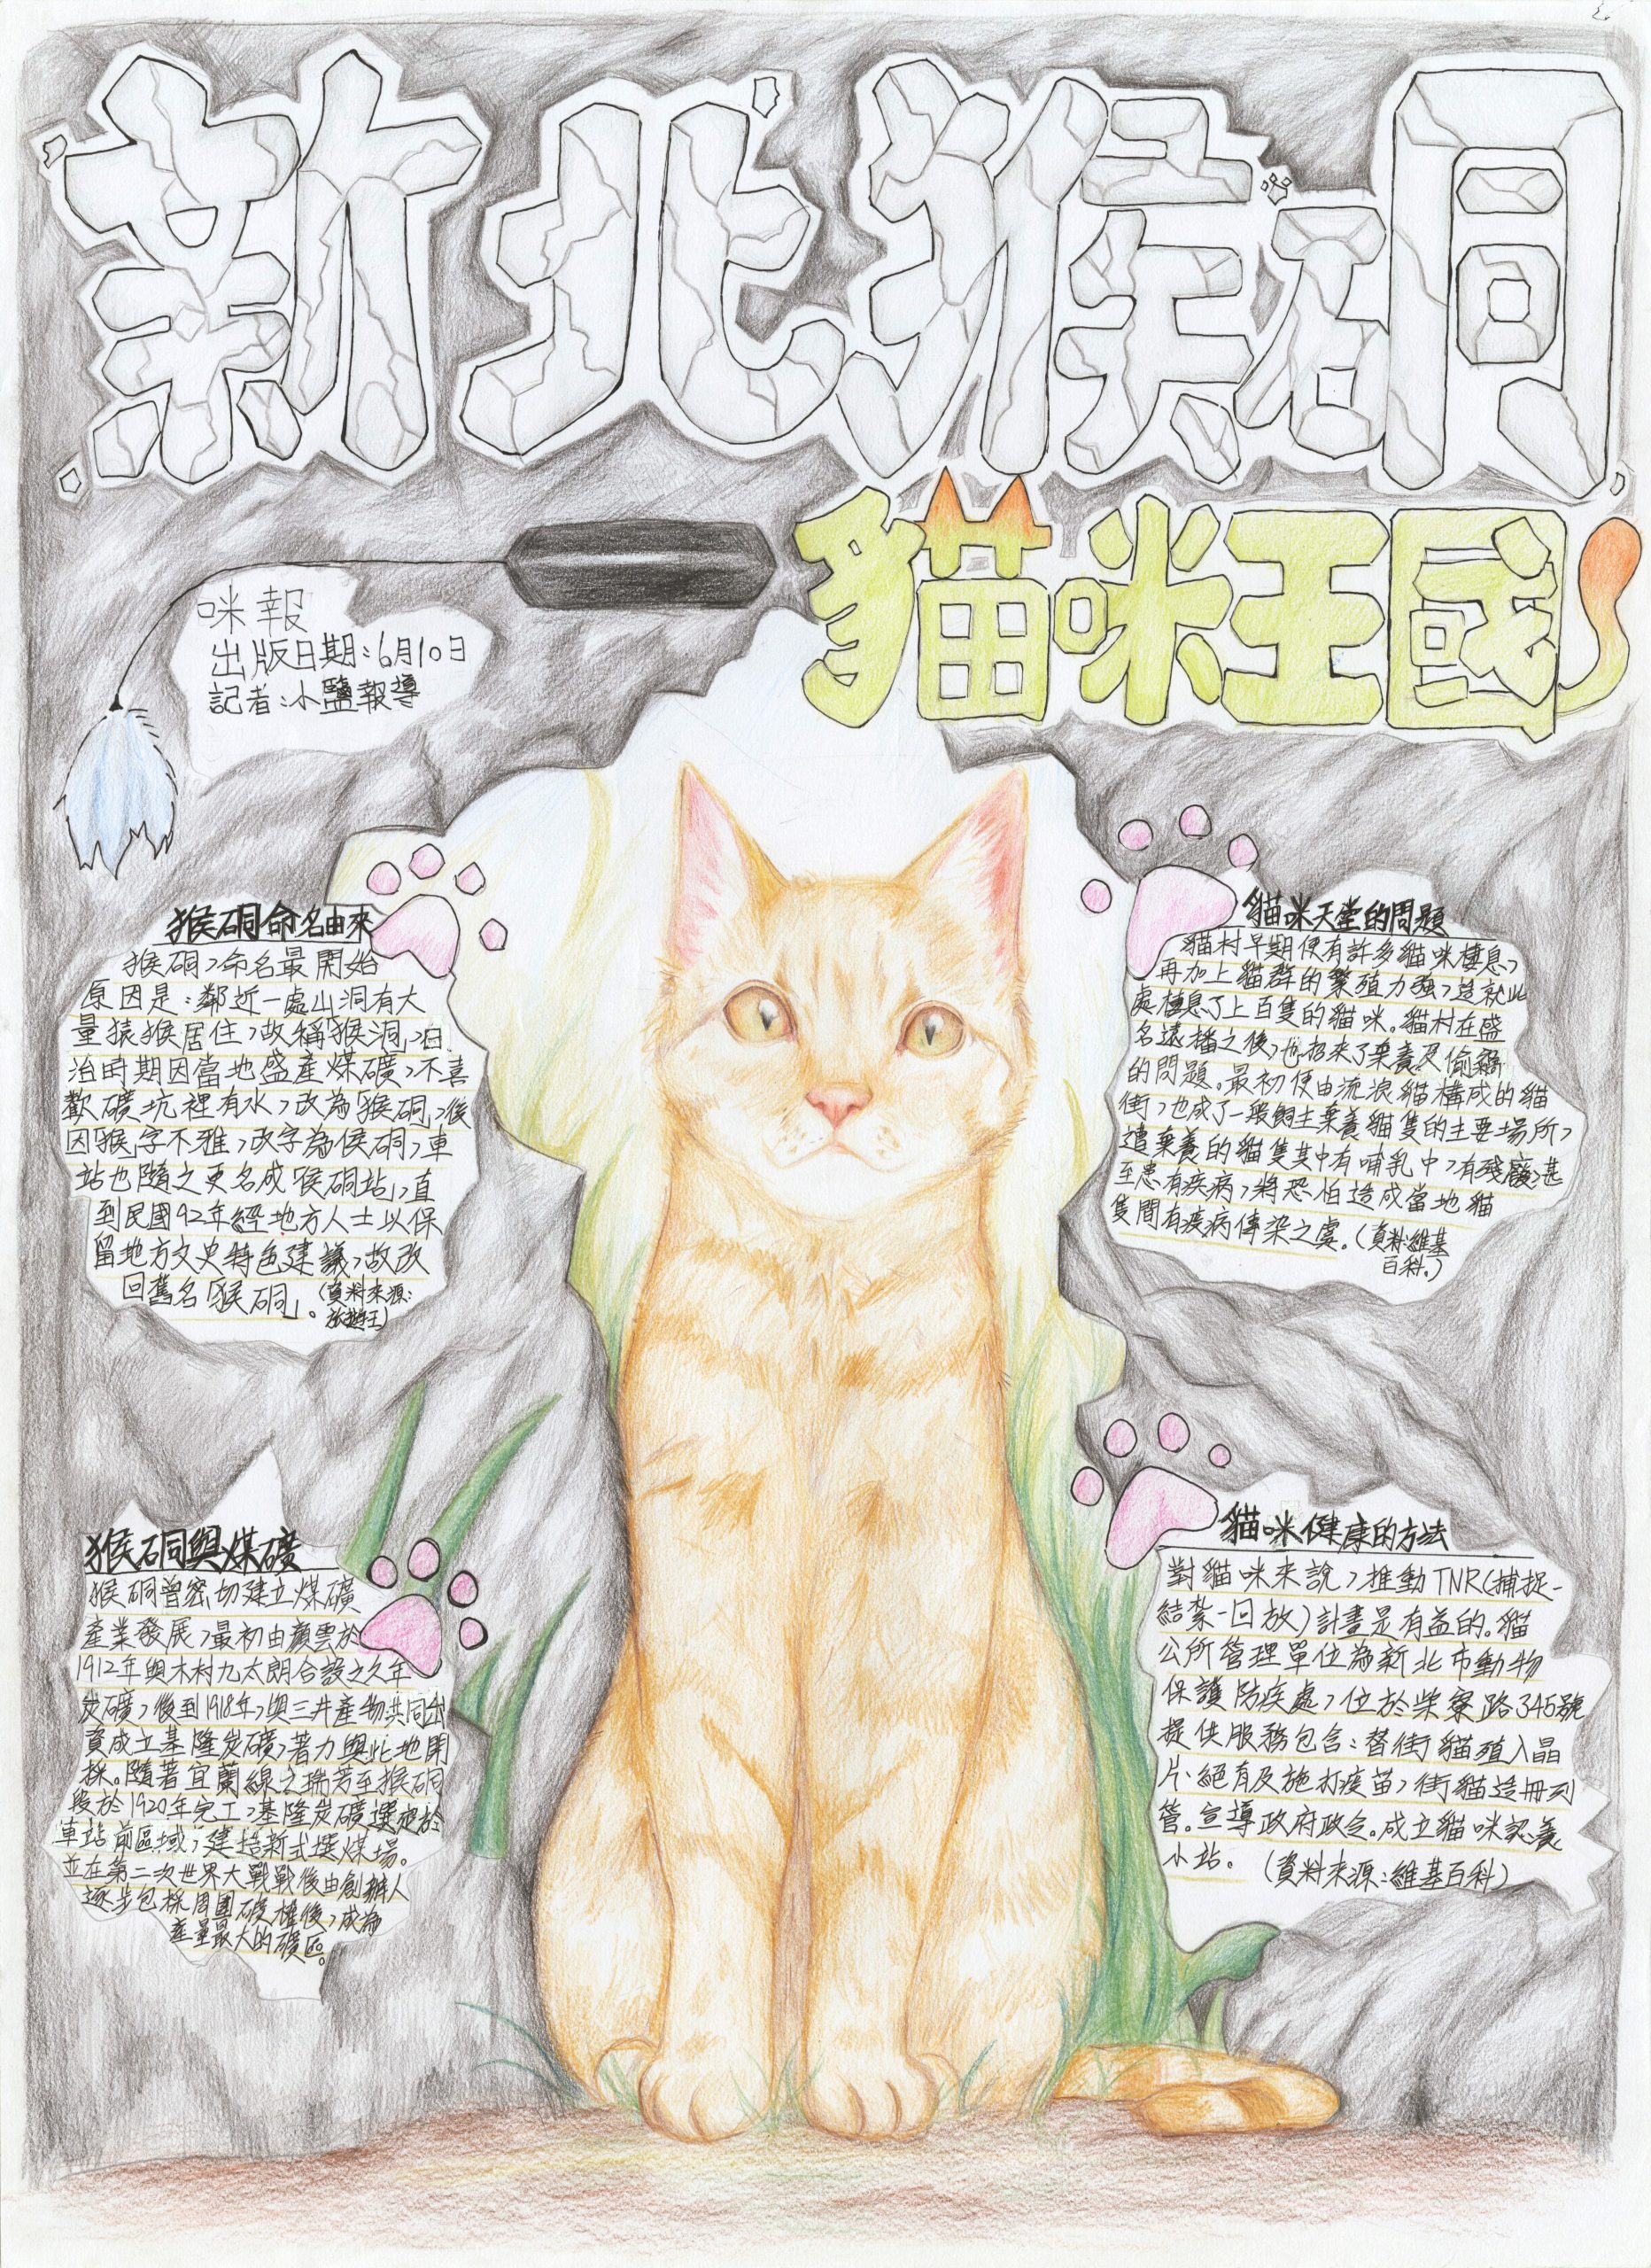 新北猴硐
貓咪王國
咪報
出版日期：6月10日
記者：小鹽報導
猴硐命名由來
猴硐，命名最開始
原因是：鄰近一處山洞有大
量猿猴居住，故稱「猴洞」，日
治時期因當地盛產煤礦，不喜
歡礦坑裡有水，改為「猴硐」，後
因「猴」字不雅，改字為侯硐，車
站也隨之更名成「侯硐站」，直
到民國92年經地方人士以保
留地方文史特色建議，故改
回舊名「猴硐」。（資料來源：
旅遊王）
猴硐與煤礦
猴硐曾密切建立煤礦
產業發展，最初由顏雲於
1912年與木村九太朗合設之久年
炭礦，後到1918年，與三井產物共同出
資成立基隆炭礦，著力與此地開
採。隨著宜蘭線之瑞芳至猴硐
段於1920年完工，基隆炭礦選定於
車站前區域，建造新式選煤場。
並在第二次世界大戰戰後由創辦人
逐步包採周圍礦權後，成為
產量最大的礦區。
貓咪天堂的問題
貓村早期便有許多貓咪棲息，
再加上貓群的繁殖力強，造就此
處棲息了上百隻的貓咪。貓村在盛
名遠播之後，也招來了棄養及偷竊
的問題。最初便由流浪貓構成的貓
街，也成了一般飼主棄養貓隻的主要場所，
遭棄養的貓隻其中有哺乳中，有殘廢，甚
至患有疾病，將恐怕造成當地貓
隻間有疫病傳染之虞。（資料：維基
百科。）
貓咪健康的方法
對貓咪來說，推動TNR（捕捉-
結紮-回放）計畫是有益的。貓
公所管理單位為新北市動物
保護防疫處，位於柴寮路345號
提供服務包含：替街貓殖入晶
片、絕育及施打疫苗，街貓造冊列
管。宣導政府政令。成立貓咪認養
小站。（資料來源：維基百科）